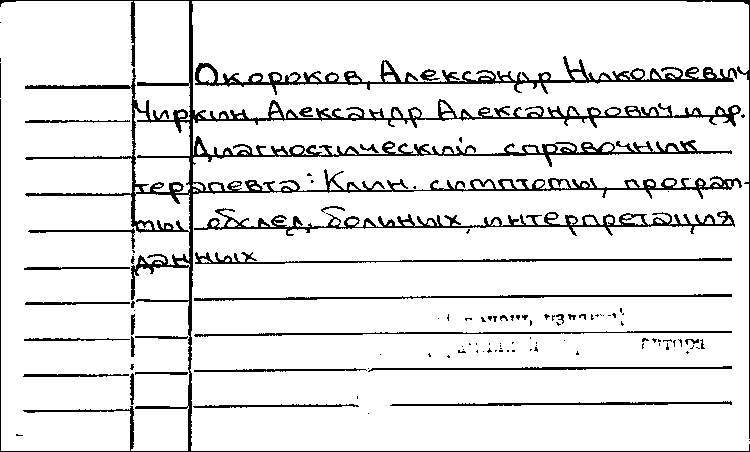 Окороков, Александр Николаевич
Чиркин, Александр Александрович и др.
Диагностический справочник
терапевта: Клин. симптомы, програм-
мы обслед. больных, интерпретация
данных
автора